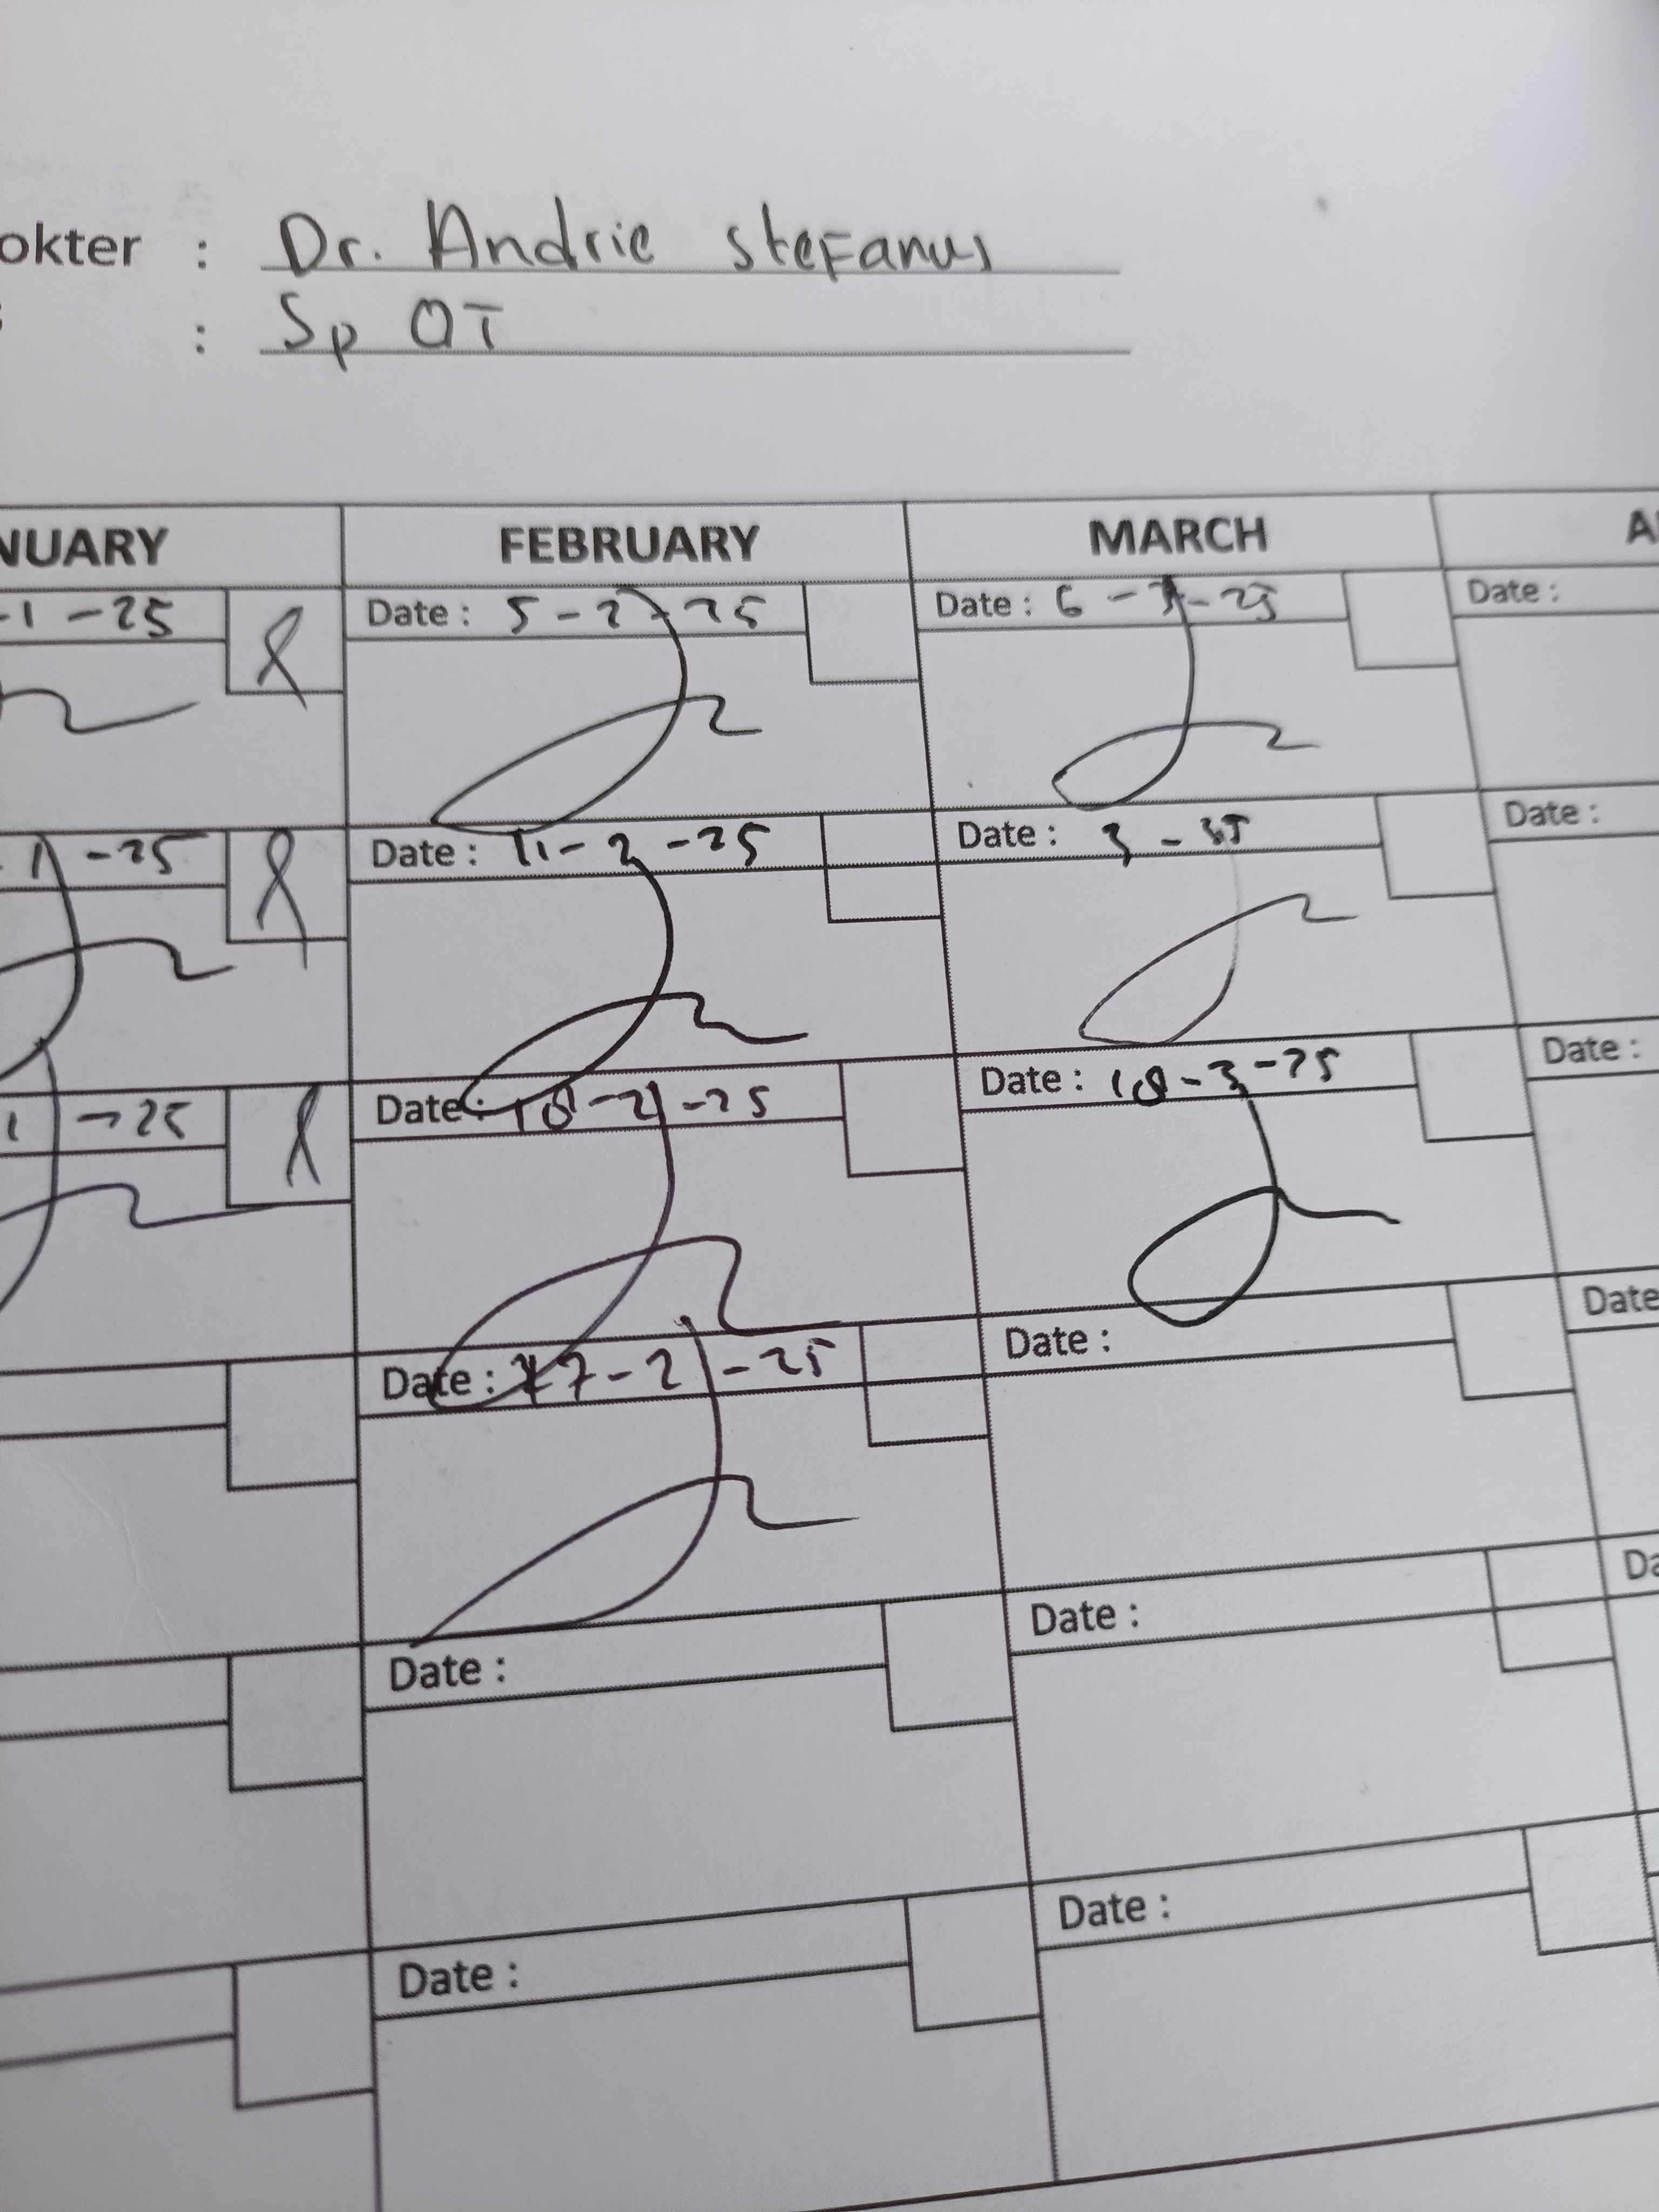 okter : Dr. Andrie Stefanus
: Sp OT
NUARY FEBRUARY MARCH A
-1-25 Date : 5-2-25 Date : 6-3-25 Date :
1-25 Date : 11-2-25 Date : 3 - Date :
1-25 Date : 18-2-25 Date : 18-3-25 Date :
Date : 27-2-25 Date : Date
Date : Date : Da
Date : Date :